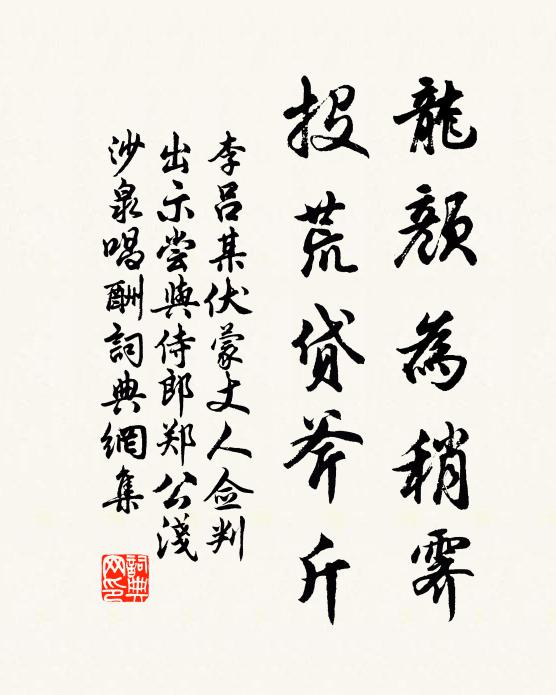 龍顏為稍霽
投荒貸斧斤
李呂某伏蒙丈人佥判
出示尝與侍郎郑公淺
沙泉唱酬詞典網集
詞典
网印